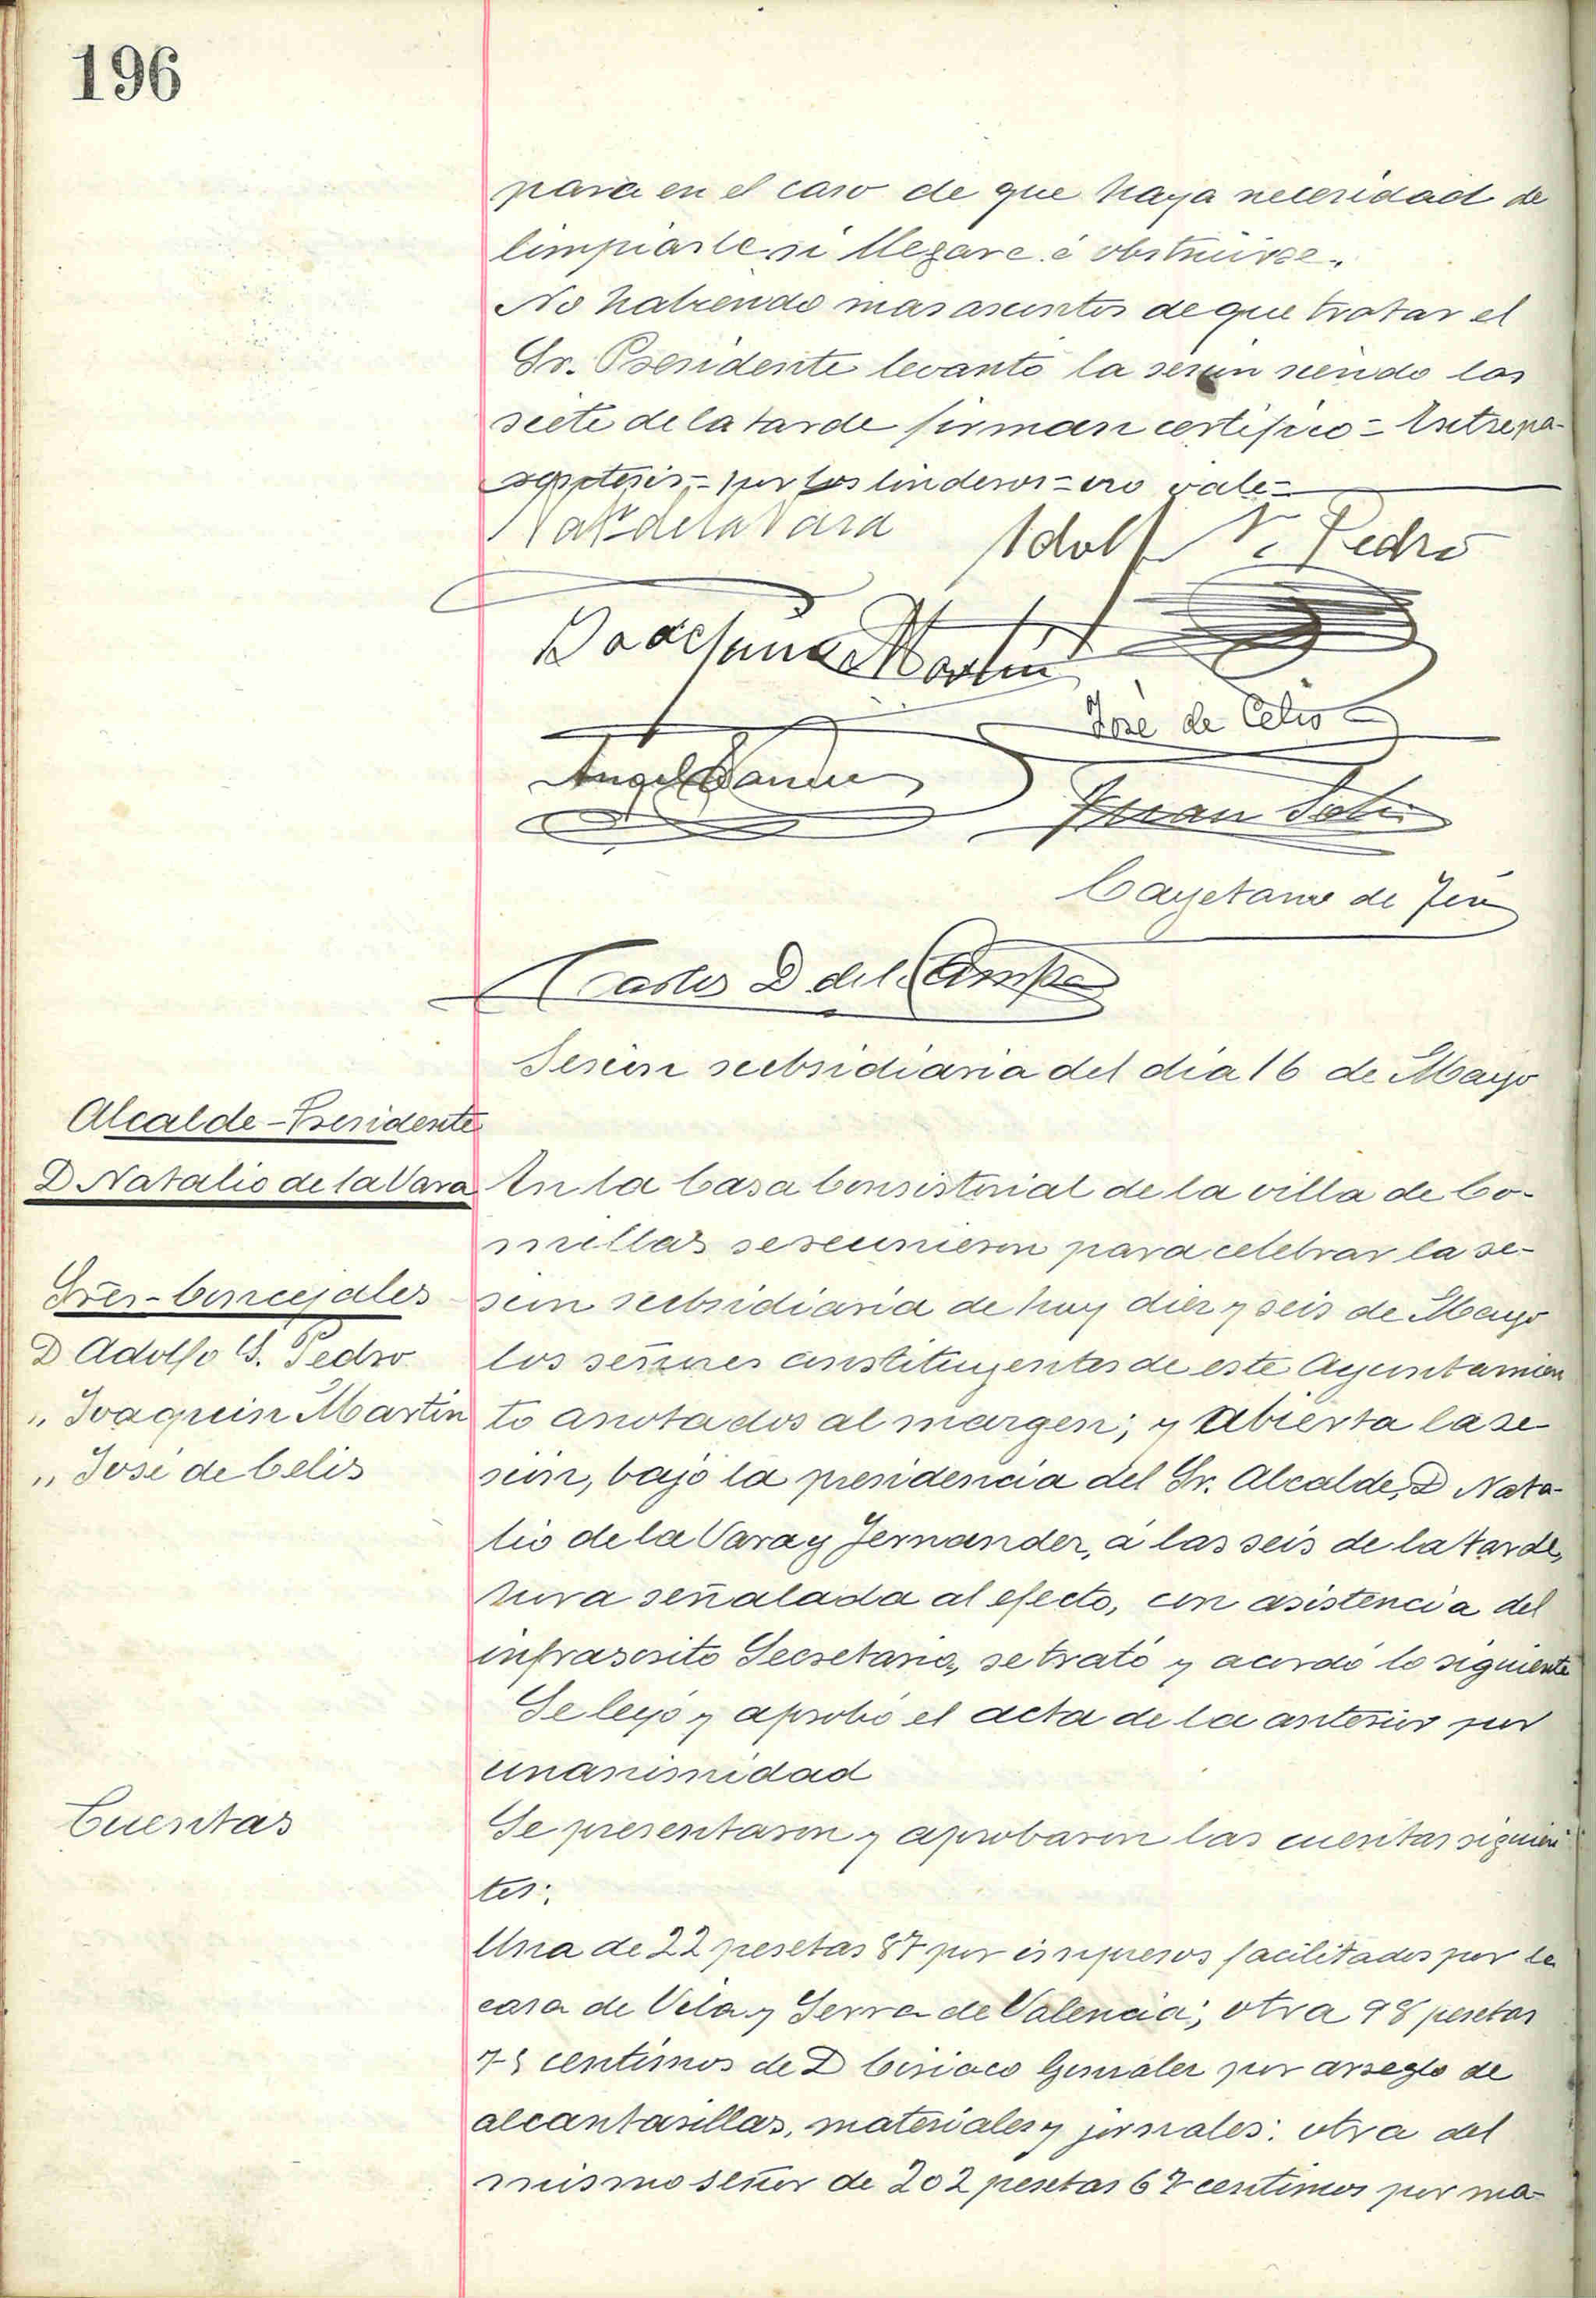 196
para en el caso de que haya necesidad de
limpiarle si llegare á obstruirse.
No habiendo mas asuntos de que tratar el
Sr. Presidente levantó la sesion siendo las
siete de la tarde firman certifico = Entre pa-
por los linderos = no vale =
Nat. de la Vara
Adolfo S. Pedro
Joachin Martin
José de Celis
Angel
Juan
Cayetano de
Carlos D del Campo
Sesion subsidiaria del dia 16 de Mayo
Alcalde - Presidente
D Natalio de la Vara
Sres - Concejales
D Adolfo S. Pedro
" Joaquin Martin
" José de Celis
En la Casa Consistorial de la villa de Co-
millas se reunieron para celebrar la se-
sion subsidiaria de hoy diez y seis de Mayo
los señores constituyentes de este Ayuntamien
to anotados al margen; y abierta la se
sion, bajo la presidencia del Sr. Alcalde, D Nata-
lio de la Vara y Fernandez, á las seis de la tarde,
hora señalada al efecto, con asistencia del
infrascrito Secretario, se trató y acordó lo siguiente
Se leyó y aprobó el acta de la anterior por
unanimidad
Cuentas
Se presentaron y aprobaron las cuentas siguien-
tes:
Una de 22 pesetas 87 por impresos facilitados por la
casa de Vela y Serra de Valencia; otra 98 pesetas
75 centimos de D Ciriaco Gonzalez por arreglo de
alcantarillas, materiales y jornales: otra del
mismo señor de 202 pesetas 67 centimos por ma-